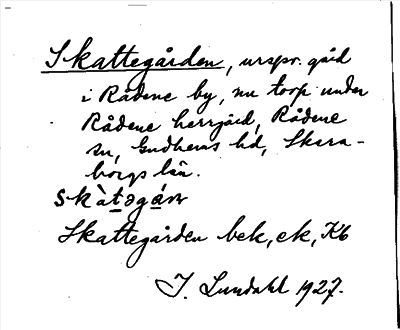 Skattegården, urspr. gård
i Rådene by, nu torp under
Rådene herrgård, Rådene
sn, Gudhems hd, Skara-
borgs län.
skàt̲əgáɳ
Skattegården bek, ek, Kb
I. Lundahl 1927.